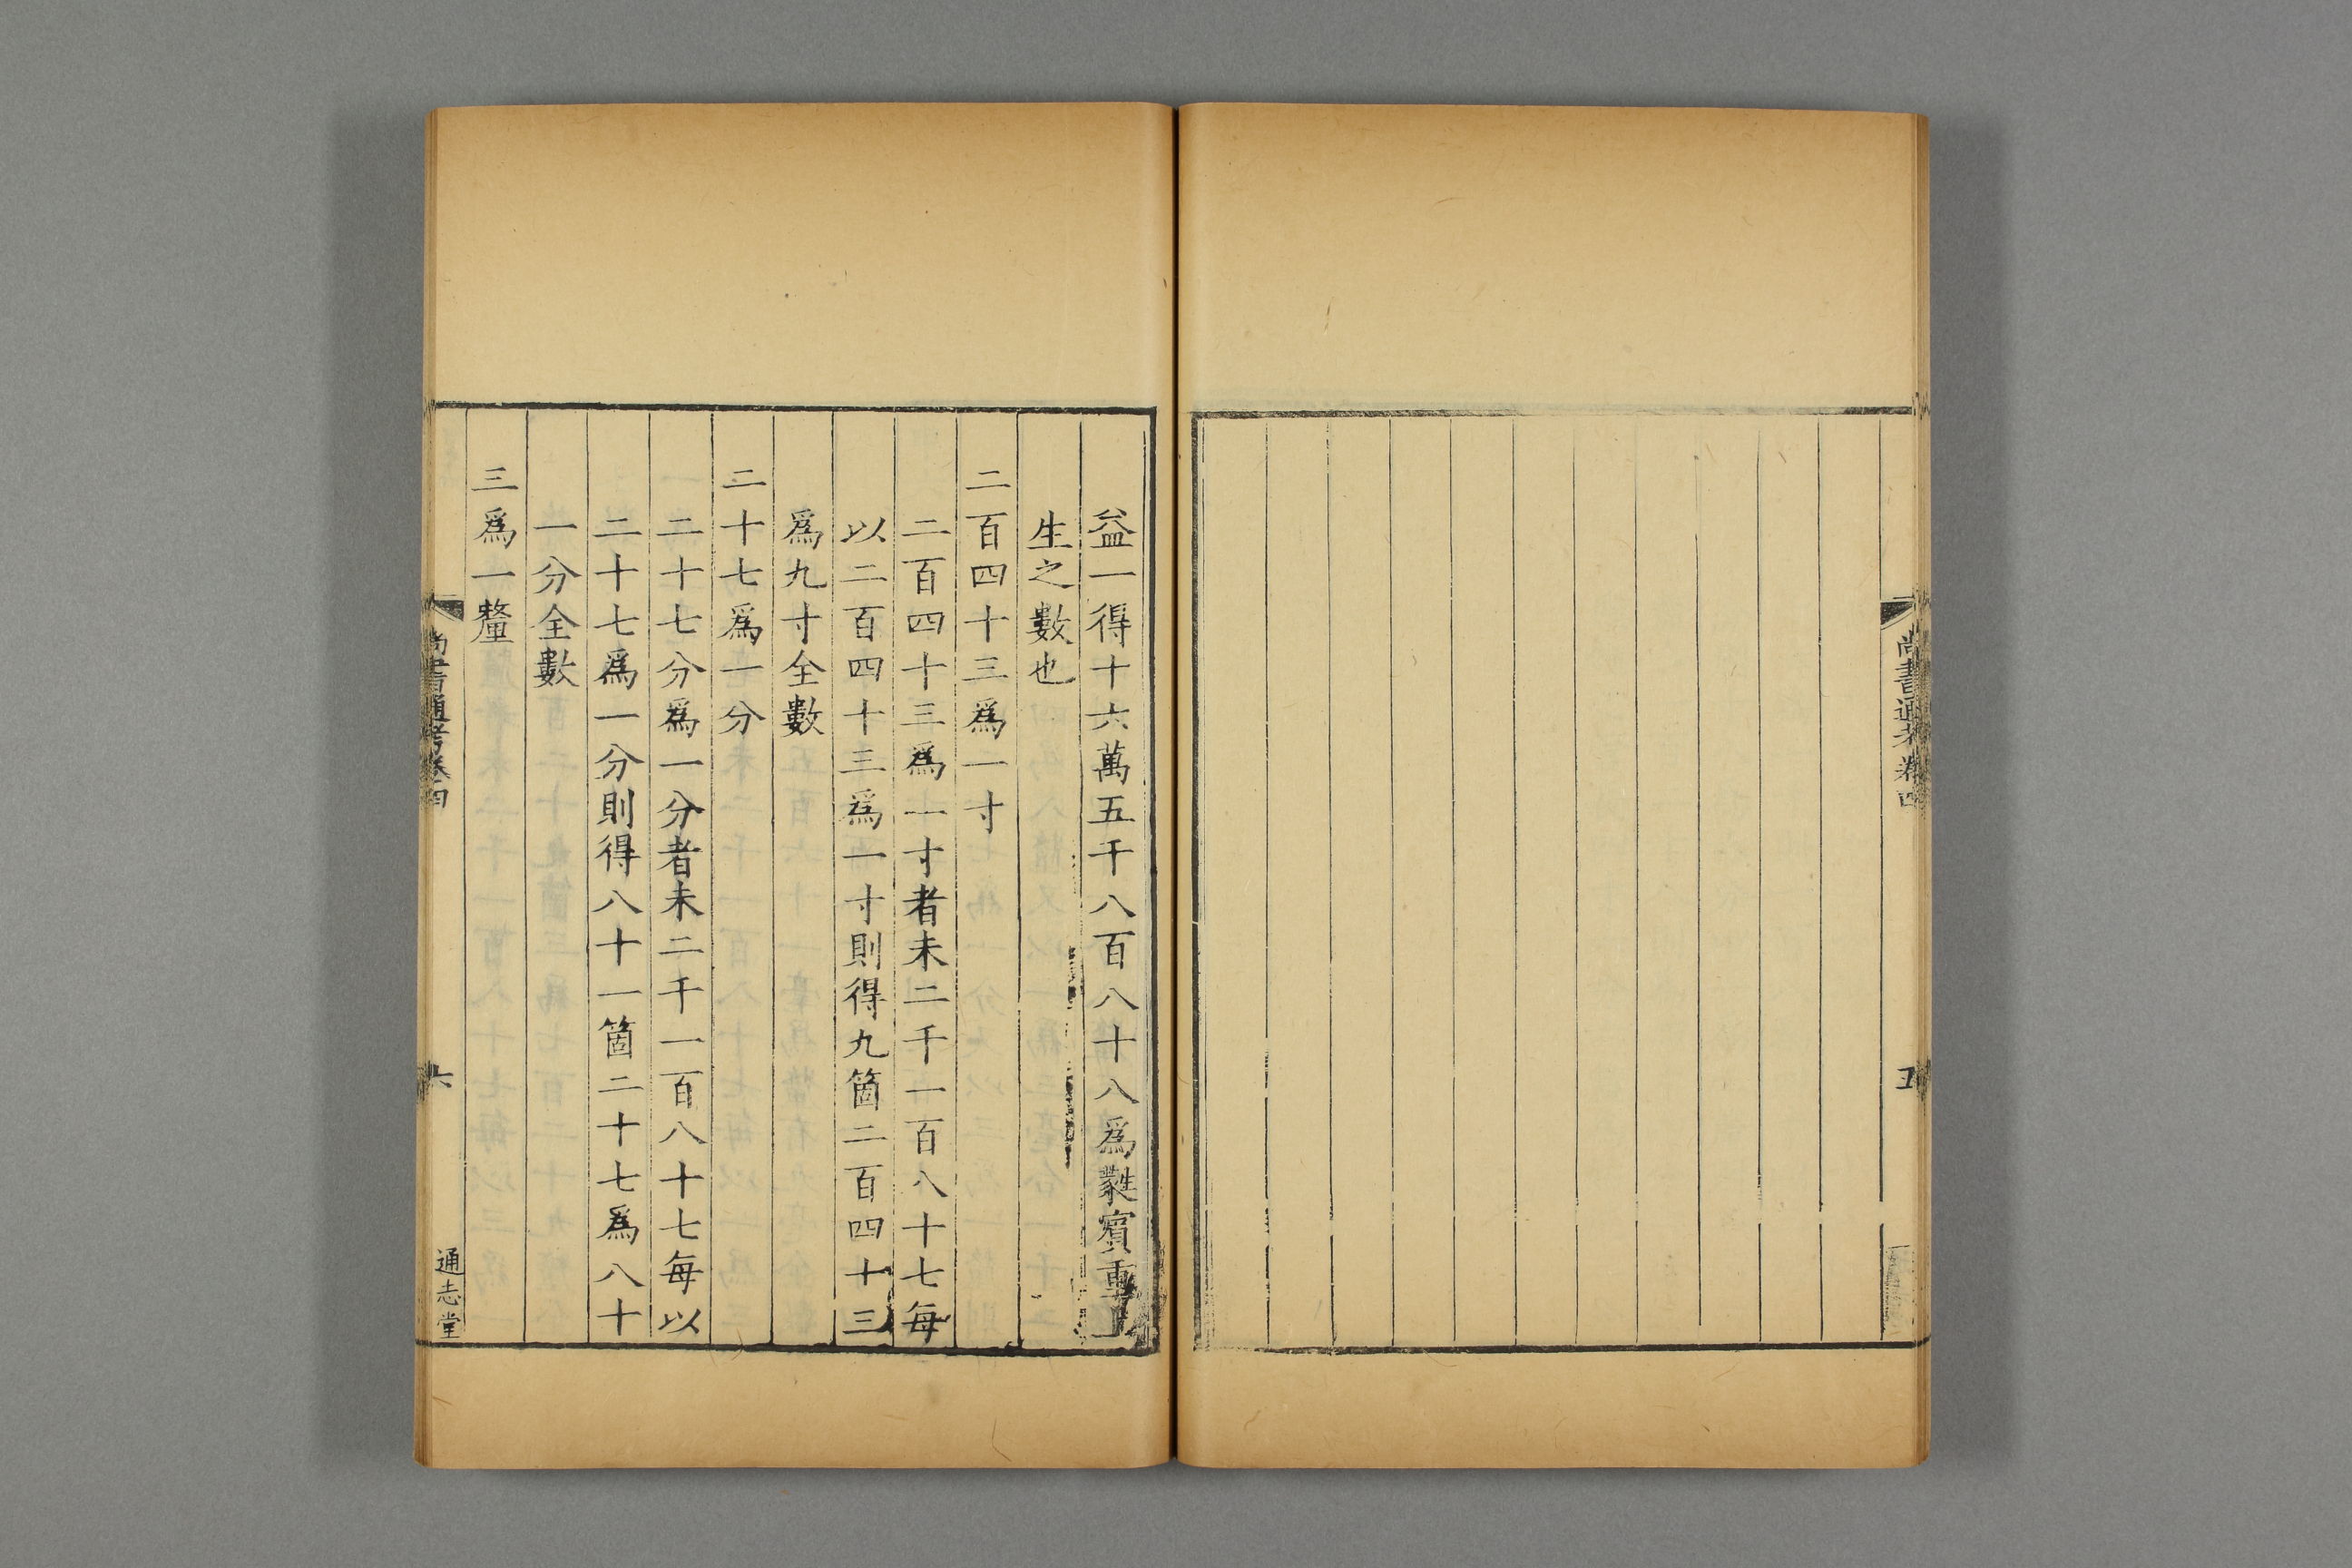 尚書通考卷四
五
益一得十六萬五千八百八十八爲蕤賓重上
生之數也
二百四十三爲一寸
二百四十三爲一寸者未二千一百八十七每
以二百四十三爲一寸則得九箇二百四十三
爲九寸全數
二十七爲一分
二十七分爲一分者未二千一百八十七每以
二十七爲一分則得八十一箇二十七爲八十
一分全數
三爲一釐
尚書通考卷四
六
通志堂